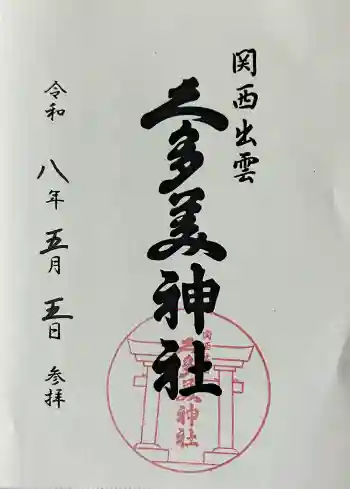 関西出雲
久多美神社
令和 八年 五月 五日 参拝
関西
久多美神社